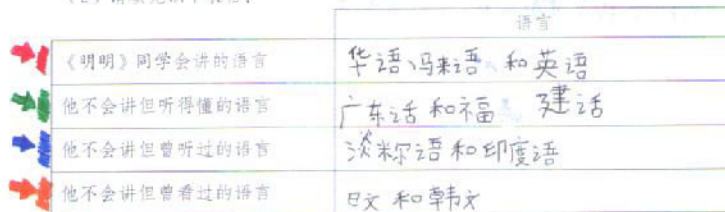 语言
《明明》同学会讲的语言 华语、冯来语、和英语
他不会讲但听得懂的语言 广东话和福建话
他不会讲但曾听过的语言 淡米尔语和印度语
他不会讲但曾看过的语言 日文和韩文